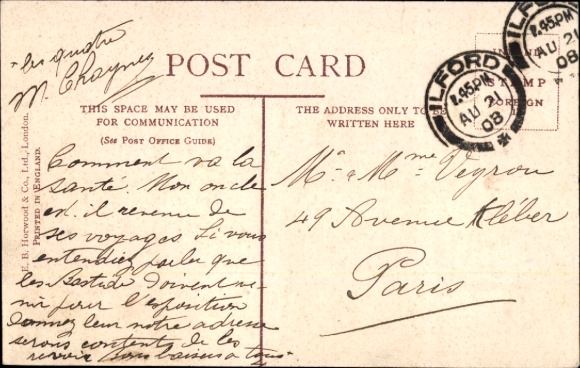 les quatre
M. Chaynes
POST CARD
THIS SPACE MAY BE USED
FOR COMMUNICATION
(See Post Office Guide)
THE ADDRESS ONLY TO BE
WRITTEN HERE
INLAND
STAMP
FOREIGN
ILFORD
7.45PM
AU 21
08
ILFORD
7.45PM
AU 21
08
E. B. Horwood & Co., Ltd., London.
PRINTED IN ENGLAND.
Comment va la
santé. Mon oncle
est-il revenu de
ses voyages. Si vous
entendiez parler que
les Bastide doivent ve
nir pour l'exposition
donnez leur notre adresse
serons contents de les
revoir. bons baisers à tous
Mr & Mme Veyrou
49 Avenue Kléber
Paris